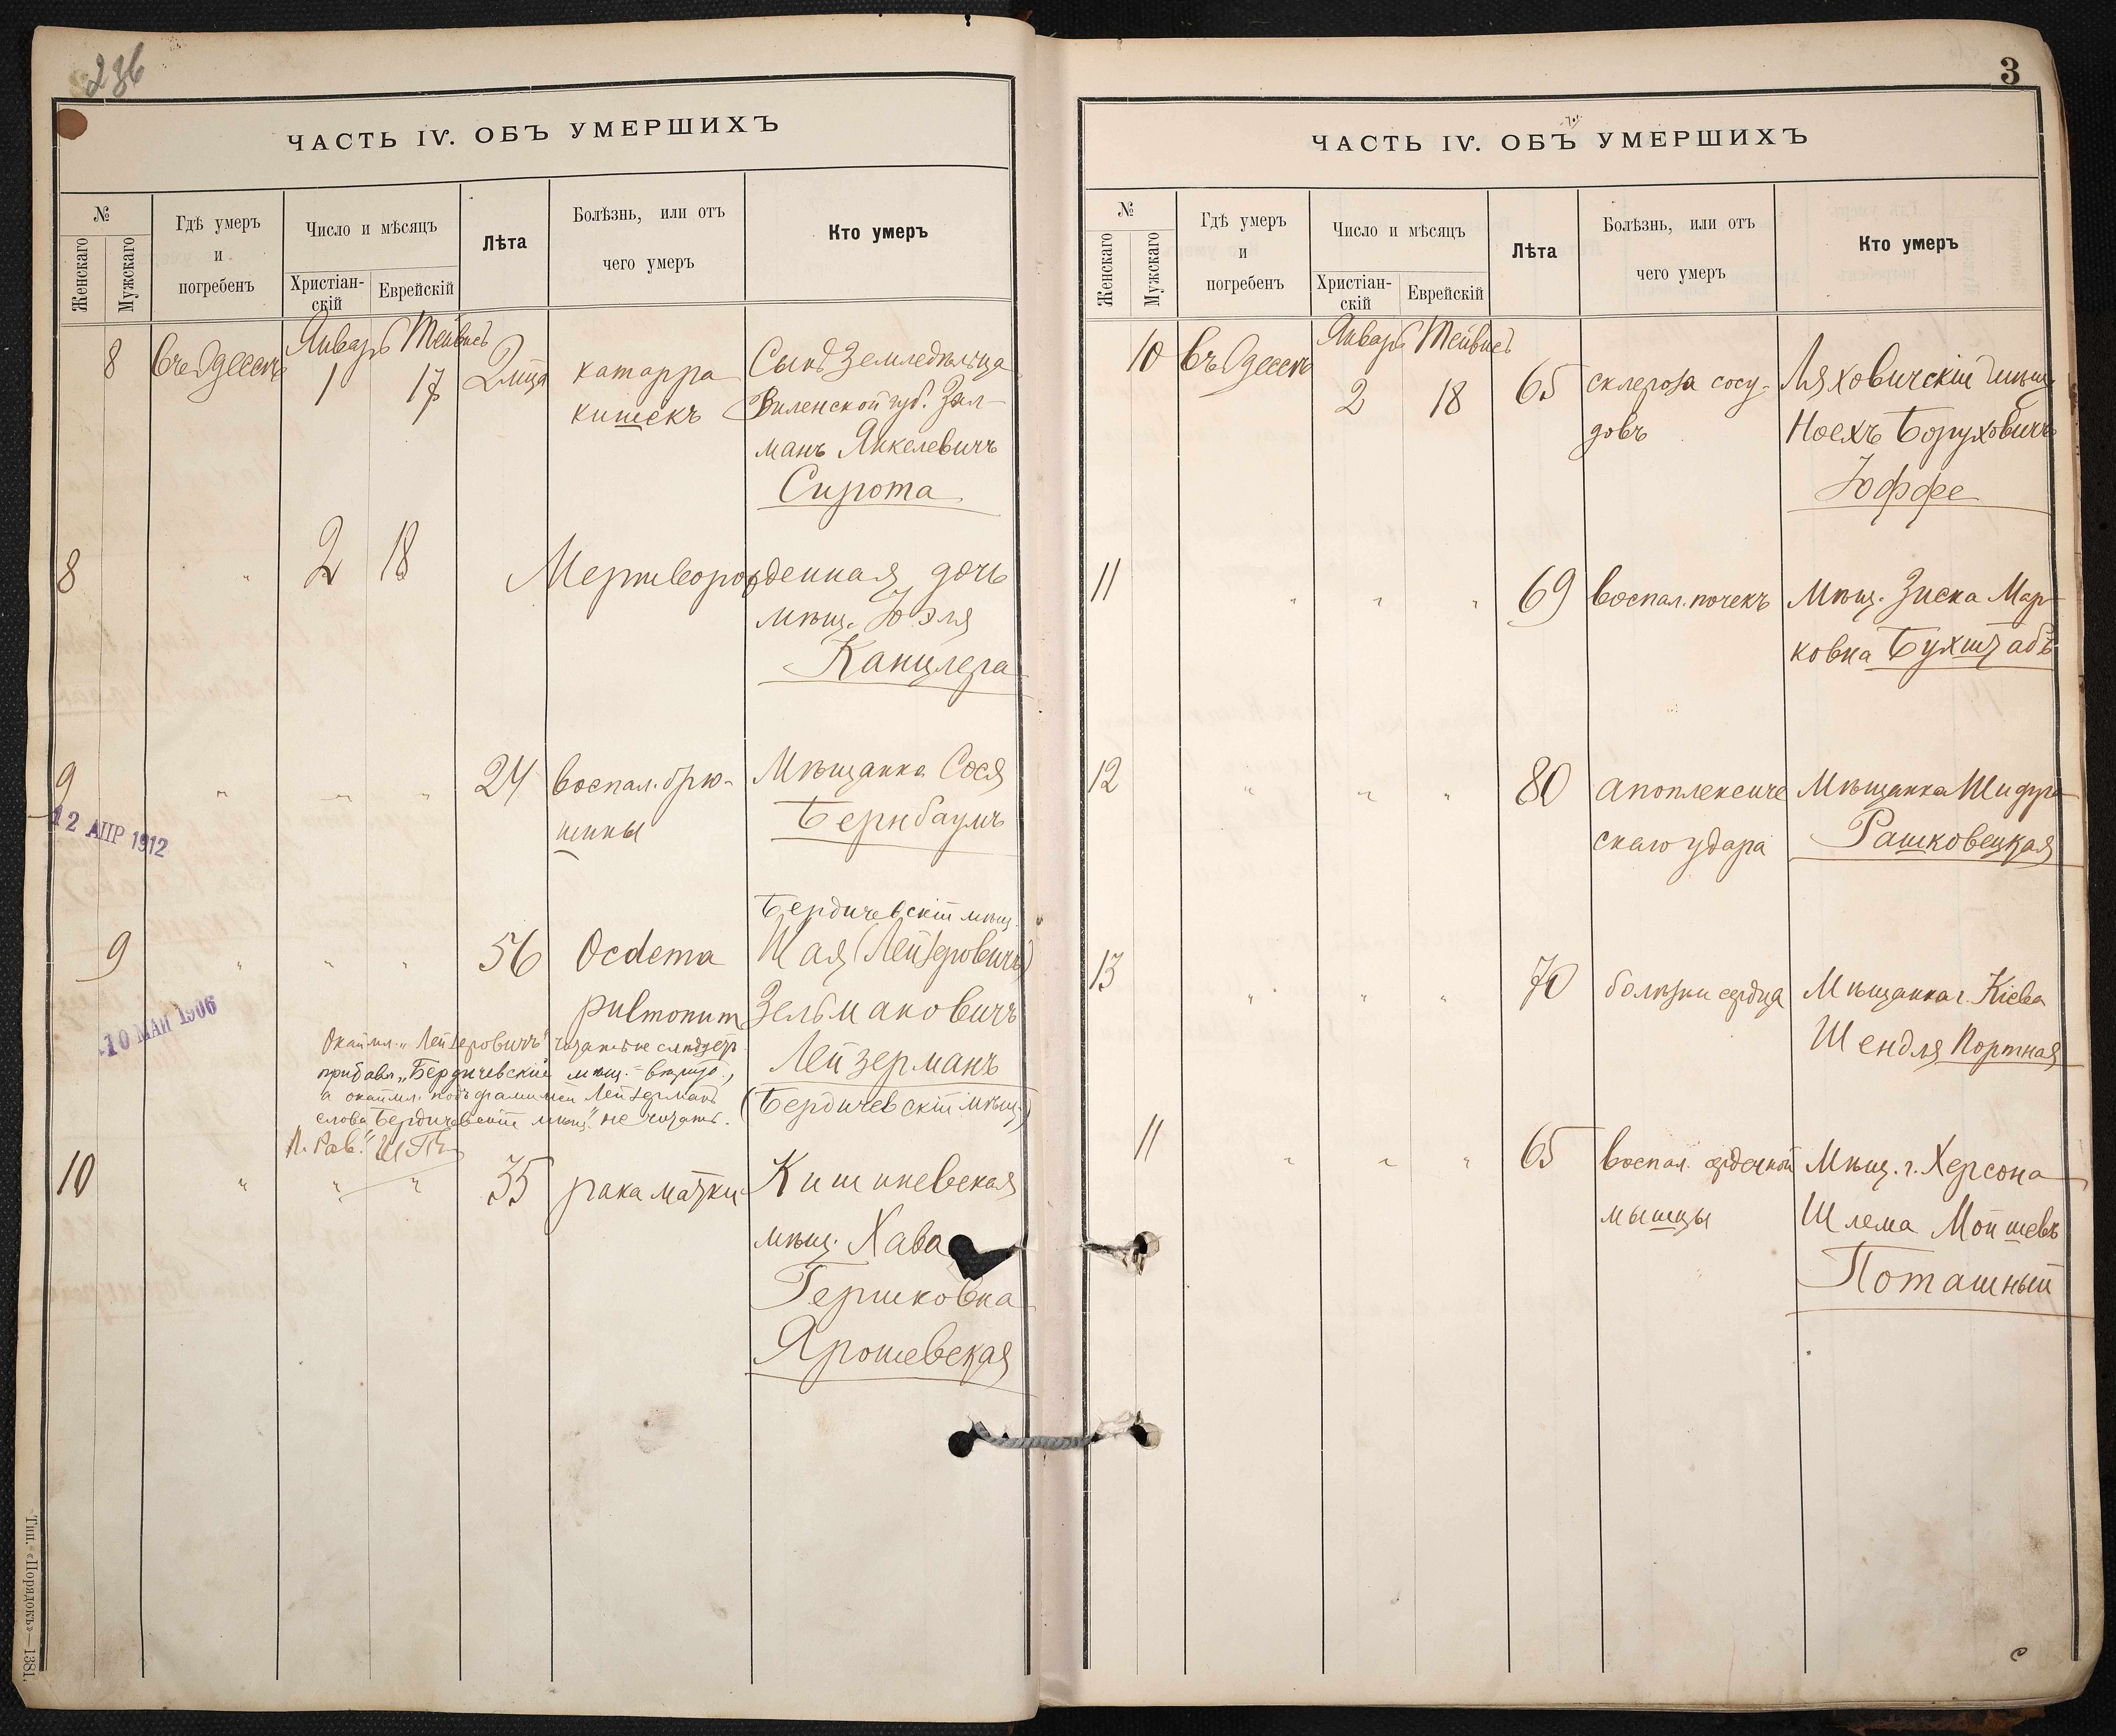 236
ЧАСТЬ IV. ОБЪ УМЕРШИХЪ
№
Женскаго
Мужскаго
Гдѣ умеръ
и
погребенъ
Число и мѣсяцъ
Христіан-
скій
Еврейскій
Лѣта
Болѣзнь, или отъ
чего умеръ
Кто умеръ
Январь Тейвисъ
8 Въ Одессѣ 1 17 2 мца катарра Сынъ Земледѣльца
кишекъ Виленской губ. Зал-
манъ Янкелевичъ
Сирота
8 " 2 18 Мертворожденная дочь
мѣщ. Юэля
Канцлера
9 " " " 24 воспал. брю- Мѣщанка Сося
шины Бернбаумъ
12 АПР 1912
Бердичевскій мѣщ.
9 " " " 56 Oedema Шая (Лейзеровичъ)
pulmonum Зельмановичъ
10 МАЙ 1906
Окаймл. „Лейзеровичъ" читать не слѣдуетъ
Лейзерманъ
прибавл. „Бердичевскій мѣщ."
а окаймл. подъ фамиліей Лейзерманъ
(Бердичевскій мѣщ.)
слова „Бердичевскій мѣщ." не читать.
10 " " " 35 рака матки Кишиневская
мѣщ. Хава
Гершковна
Ярошевская
Тип. «Порядокъ»—1381.
3
ЧАСТЬ IV. ОБЪ УМЕРШИХЪ
№
Женскаго
Мужскаго
Гдѣ умеръ
и
погребенъ
Число и мѣсяцъ
Христіан-
скій
Еврейскій
Лѣта
Болѣзнь, или отъ
чего умеръ
Кто умеръ
Январь Тейвисъ
10 Въ Одессѣ 2 18 65 склероза сосу- Ляховичскій мѣщ.
довъ Ноехъ Боруховичъ
Юффе
11 " " " 69 воспал. почекъ Мѣщ. Зиска Мар-
ковна Бухштабъ
12 " " " 80 апоплексиче Мѣщанка Шифра
скаго удара Рашковецкая
13 " " " 70 болѣзни сердца Мѣщанка г. Кіева
Шендля Портная
11 " " " 65 воспал. сердечной Мѣщ. г. Херсона
мышцы Шлема Мойшевъ
Поташный